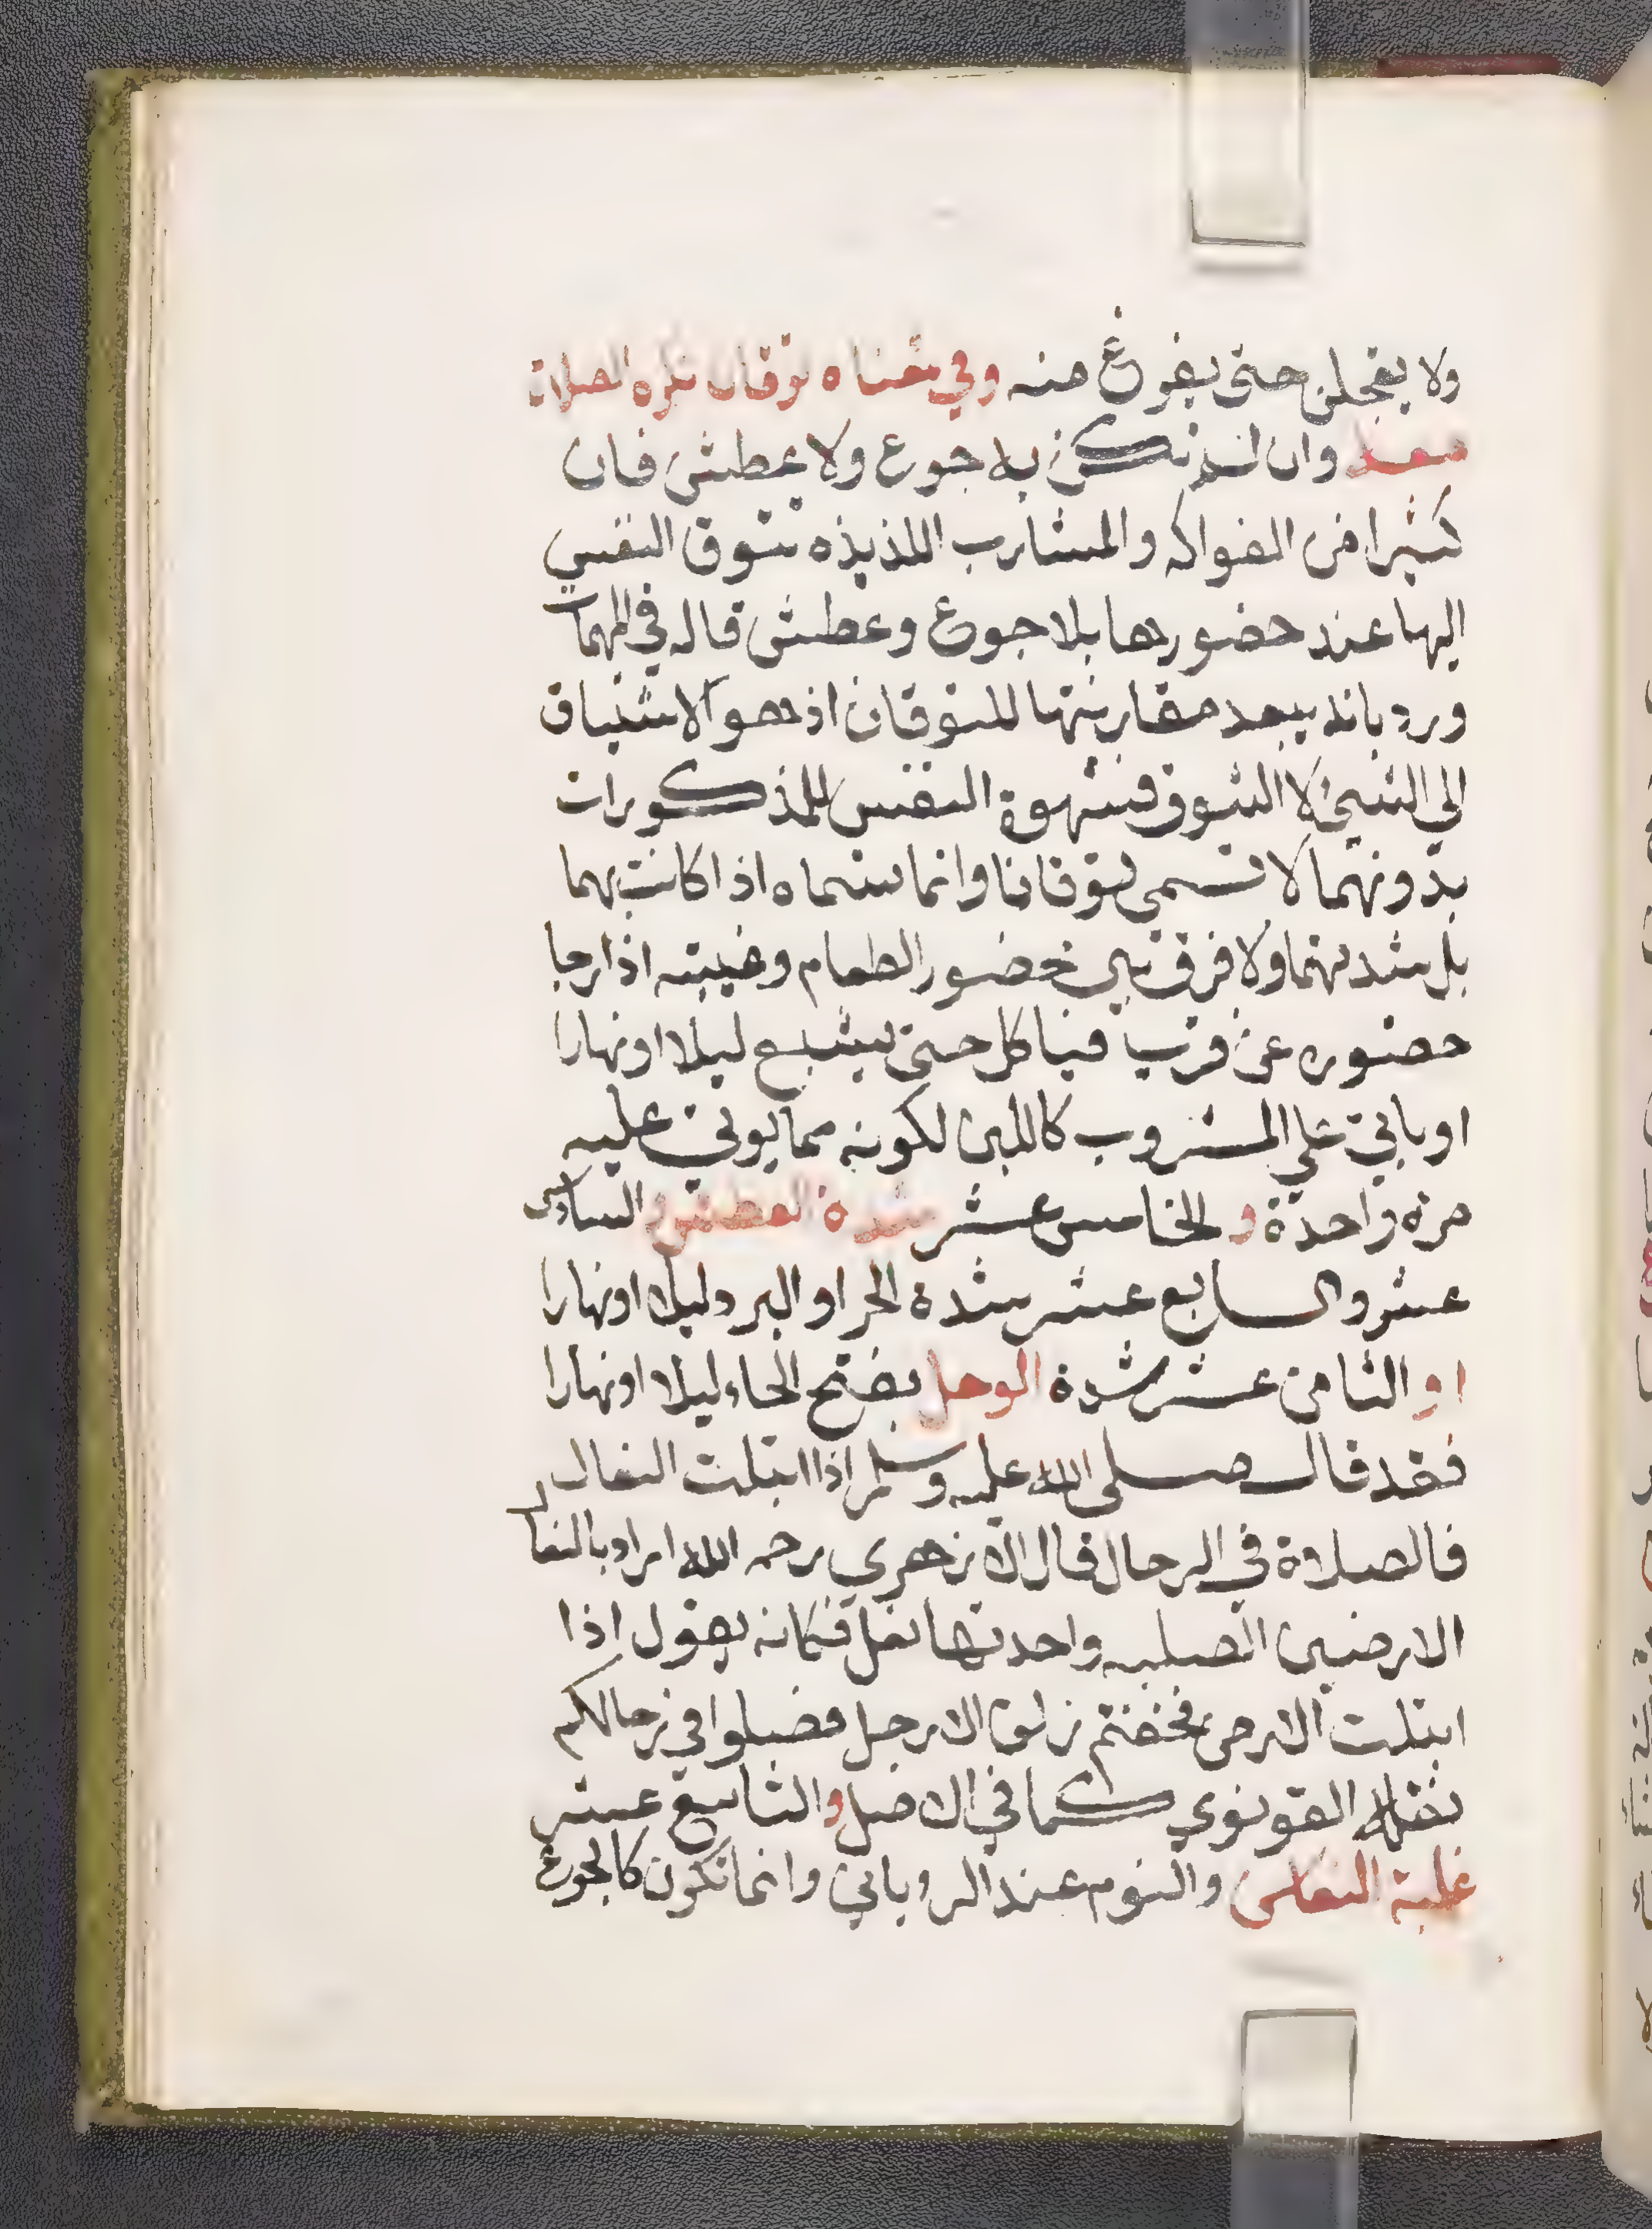 ولا يعجلن حتى يفرغ منه وفي معناه توقان تكره الصلاة
معه وان لم تكن به جوع ولا عطش فان
كثيرا من الفواكه والمشارب اللذيذه تتوق النفس
اليها عند حضورها بلا جوع وعطش قاله في المهما
ورد بانه يبعد مقارنتها للتوقان اذ هو الاشتياق
الى الشي لا الشوق فشهوة النفس للمذكورات
بدونهما لا تسمى توقانا وانما تسماه اذا كانت بهما
بل بشدتهما ولا فرق بين حضور الطعام وغيبته اذا رجا
حضوره عن قرب فياكل حتى يشبع ليلا او نهارا
او ياتي على المشروب كاللبن لكونه مما يوتى عليه
مرة واحدة و الخامس عشر شدة العطش والسادس
عشر والسابع عشر شدة الحر او البرد ليلا او نهارا
او الثامن عشر شدة الوحل بفتح الحاء ليلا او نهارا
فقد قال صلى الله عليه وسلم اذا ابتلت النعال
فالصلاة في الرحال قال الازهري رحمه الله اراد بالنعال
الارضين الصلبه واحدتها نعل فكانه يقول اذا
ابتلت الارض فخفتم زلق الارجل فصلوا في رحالكم
نقله القونوي كما في الاصل والتاسع عشر
غلبة النعاس والنوم عند الروياني وانما تكون كالجوع